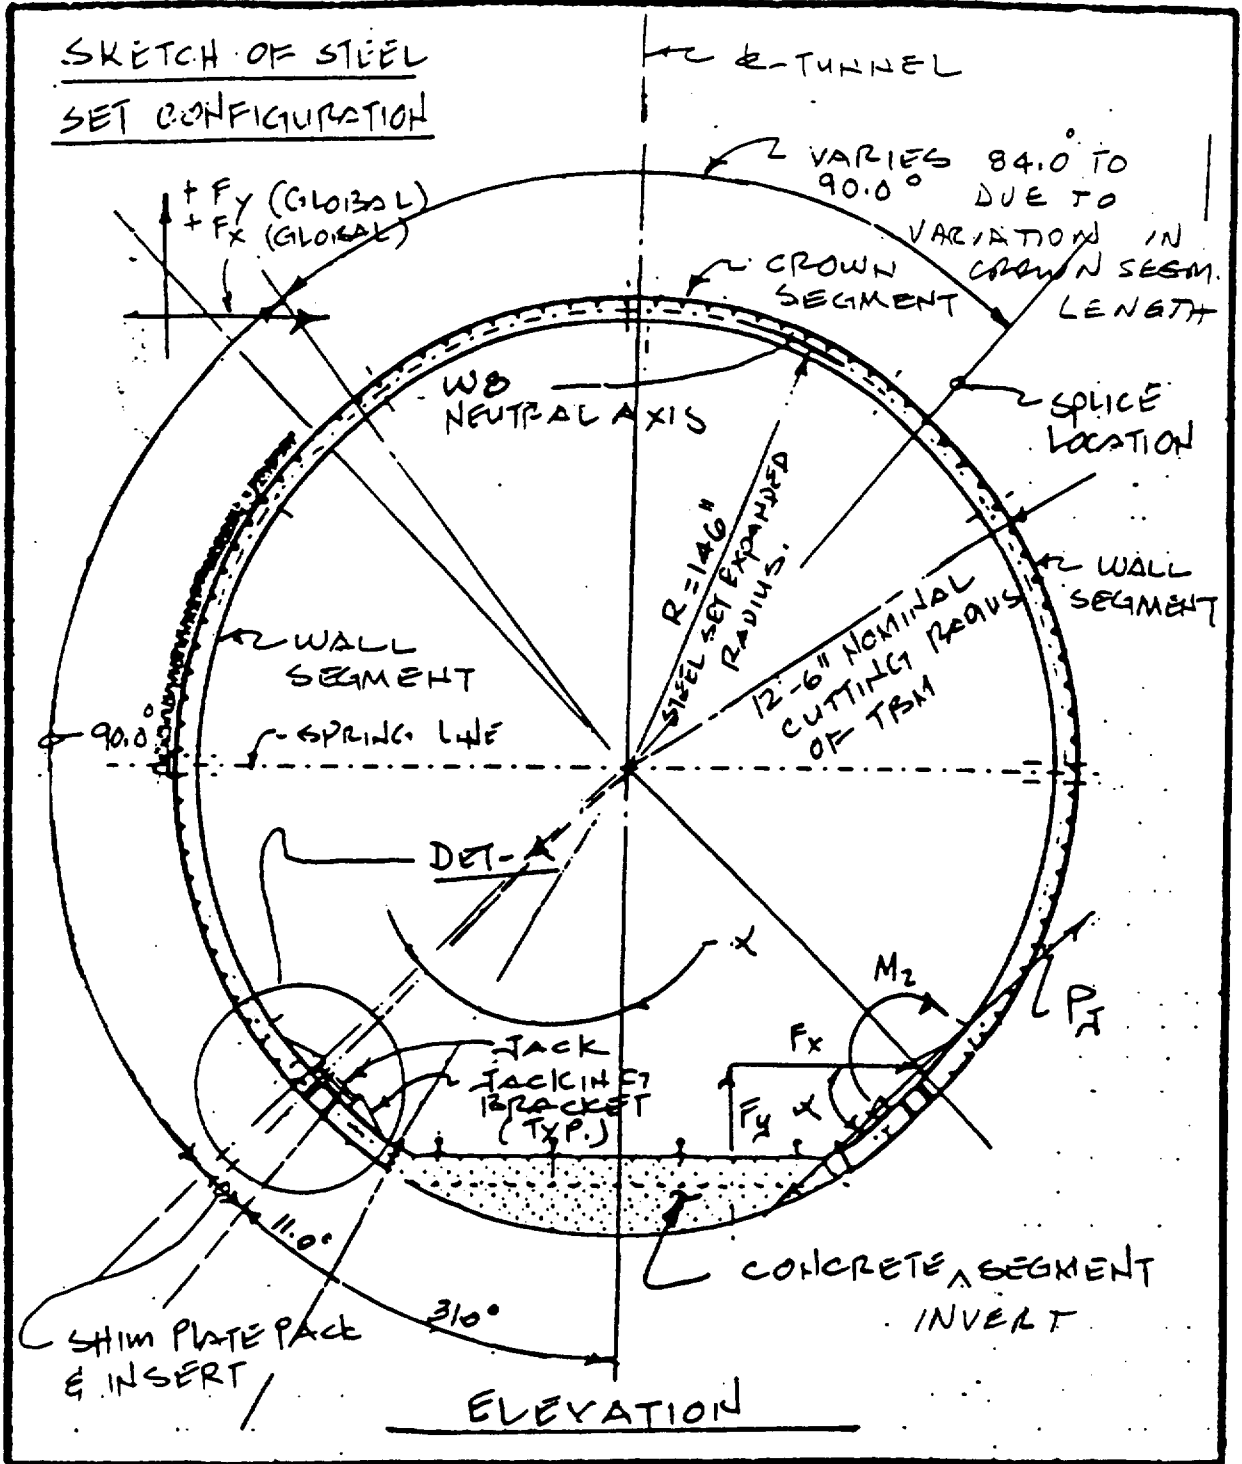 SKETCH OF STEEL
SET CONFIGURATION
℄-TUNNEL
VARIES 84.0° TO
90.0° DUE TO
VARIATION IN
CROWN SEGM.
LENGTH
+ Fy (GLOBAL)
+ Fx (GLOBAL)
CROWN
SEGMENT
W8
NEUTRAL AXIS
SPLICE
LOCATION
R=146"
STEEL SET EXPANDED
RADIUS.
WALL
SEGMENT
12'-6" NOMINAL
CUTTING RADIUS
OF TBM
WALL
SEGMENT
90.0°
SPRING LINE
DET-A
α
Mz
PJ
JACK
JACKING
BRACKET
(TYP.)
Fx
Fy
α
11.0°
31.0°
CONCRETE ^ SEGMENT
INVERT
SHIM PLATE PACK
& INSERT
ELEVATION